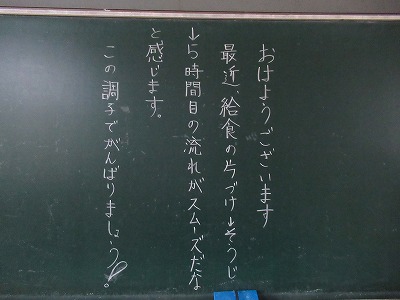 おはようございます
最近、給食の片づけ→そうじ
→5時間目の流れがスムーズだな
と感じます。
この調子でがんばりましょう!。